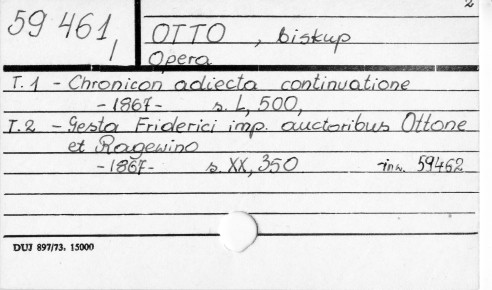 2
59 461, OTTO, biskup
I
Opera
T.1 - Chronicon adiecta continuatione
- 1867 - s. L, 500,
T.2 - Gesta Friderici imp. auctoribus Ottone
et Ragewino
- 1867 - s. XX, 350 inw. 59462
DUJ 897/73. 15000